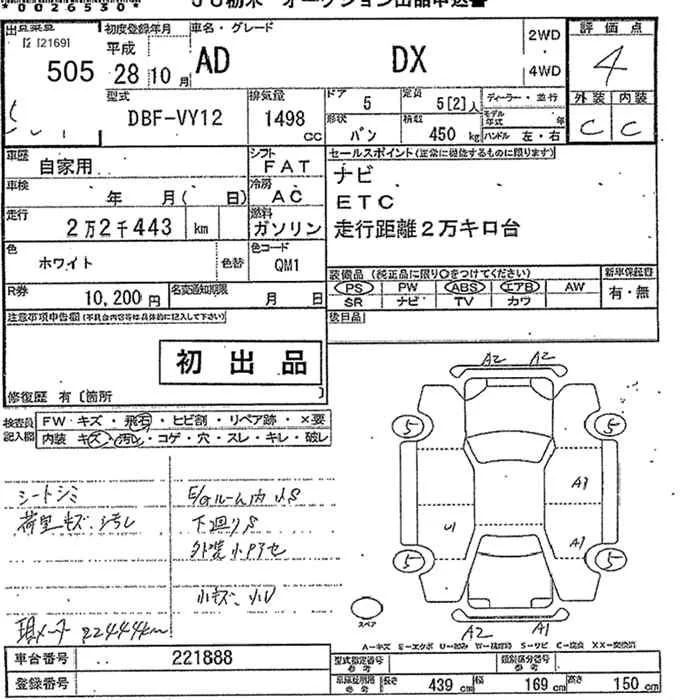 *0026530*
JU栃木 オークション出品申込書
[2169]
505
初度登録年月
平成 28年10月
車名・グレード
AD DX
2WD
4WD
評価点
4
外装 内装
C C
型式
DBF-VY12
排気量
1498 cc
ドア
5
定員
5[2]人
形状
バン
積載
450 kg
ディーラー・並行
モデル年式 年
ハンドル 左・右
車歴
自家用
シフト
FAT
セールスポイント(正常に機能するものに限ります)
ナビ
ETC
走行距離2万キロ台
車検
年 月( 日)
冷房
AC
走行
2万2千443 km
燃料
ガソリン
色
ホワイト
色替
色コード
QM1
装備品(純正品に限り○をつけてください)
PS PW ABS エアB AW
SR ナビ TV カワ
新車保証書
有・無
R券
10,200円
名変通知期限
月 日
注意事項申告欄(不具合内容等は具体的に記入して下さい)
後日品
初出品
修復歴 有〔箇所 〕
検査員記入欄
FW キズ・飛石・ヒビ割・リペア跡・×要
内装 キズ・汚れ・コゲ・穴・スレ・キレ・破レ
シートシミ
荷室キズ、汚レ
E/Gルーム内小S
下廻りS
外装小
小キズ、小U
現メーター 22444km
A2 A2
5 5
A1
U1
A1
5 5
スペア
A2 A1
A=キズ E=エクボ U=凹み W=補修跡 S=サビ C=腐食 XX=交換済
車台番号
221888
登録番号
型式指定番号
参考
類別区分番号
参考
車検証明用
参考
長さ 439 cm
幅 169 cm
高さ 150 cm